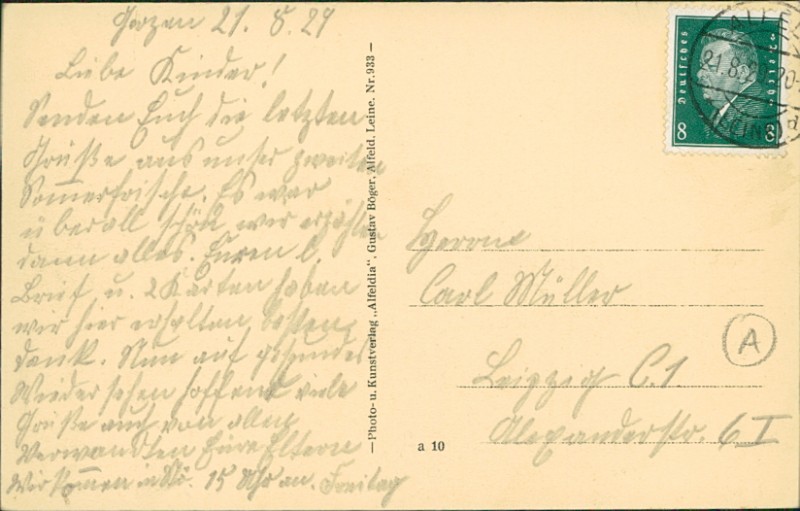 21. 8. 29
Liebe Kinder!
Senden Euch die letzten
Grüße aus unser zweiten
Sommerfrische. Es war
überall schön wir erzählen
dann alles. Euren l.
Brief u. 2 Karten haben
wir hier erhalten besten
Dank. Nun auf gesundes
Wiedersehen hoffend viele
Grüße auch von allen
Verwandten Eure Eltern
Wir kommen in 15 Uhr an. Freitag
— Photo- u. Kunstverlag „Alfeldia“, Gustav Böger, Alfeld, Leine. Nr. 933 —
a 10
Deutsches Reich
8 8
21.8.29
(LEINE)
d
Herrn
Carl Müller
A
Leipzig C.1.
Alexanderstr. 6 I